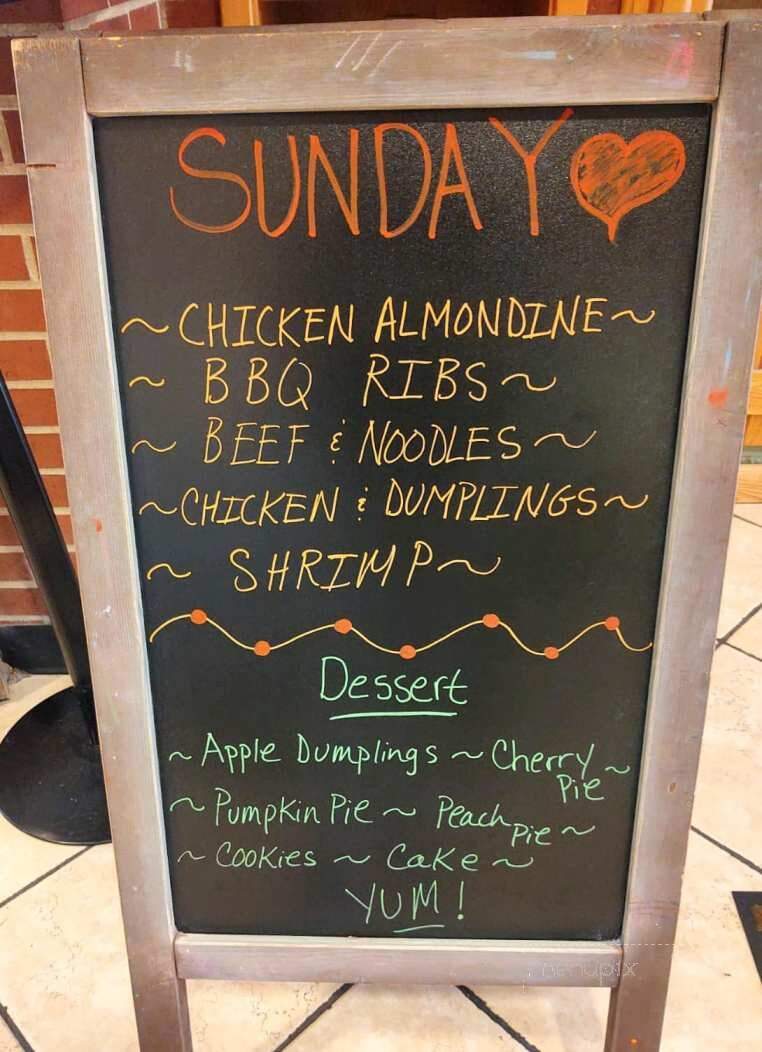 SUNDAY
~ CHICKEN ALMONDINE ~
~ BBQ RIBS ~
~ BEEF & NOODLES ~
~ CHICKEN & DUMPLINGS ~
~ SHRIMP ~
Dessert
~ Apple Dumplings ~ Cherry Pie ~
~ Pumpkin Pie ~ Peach Pie ~
~ Cookies ~ Cake ~
YUM!
menupix